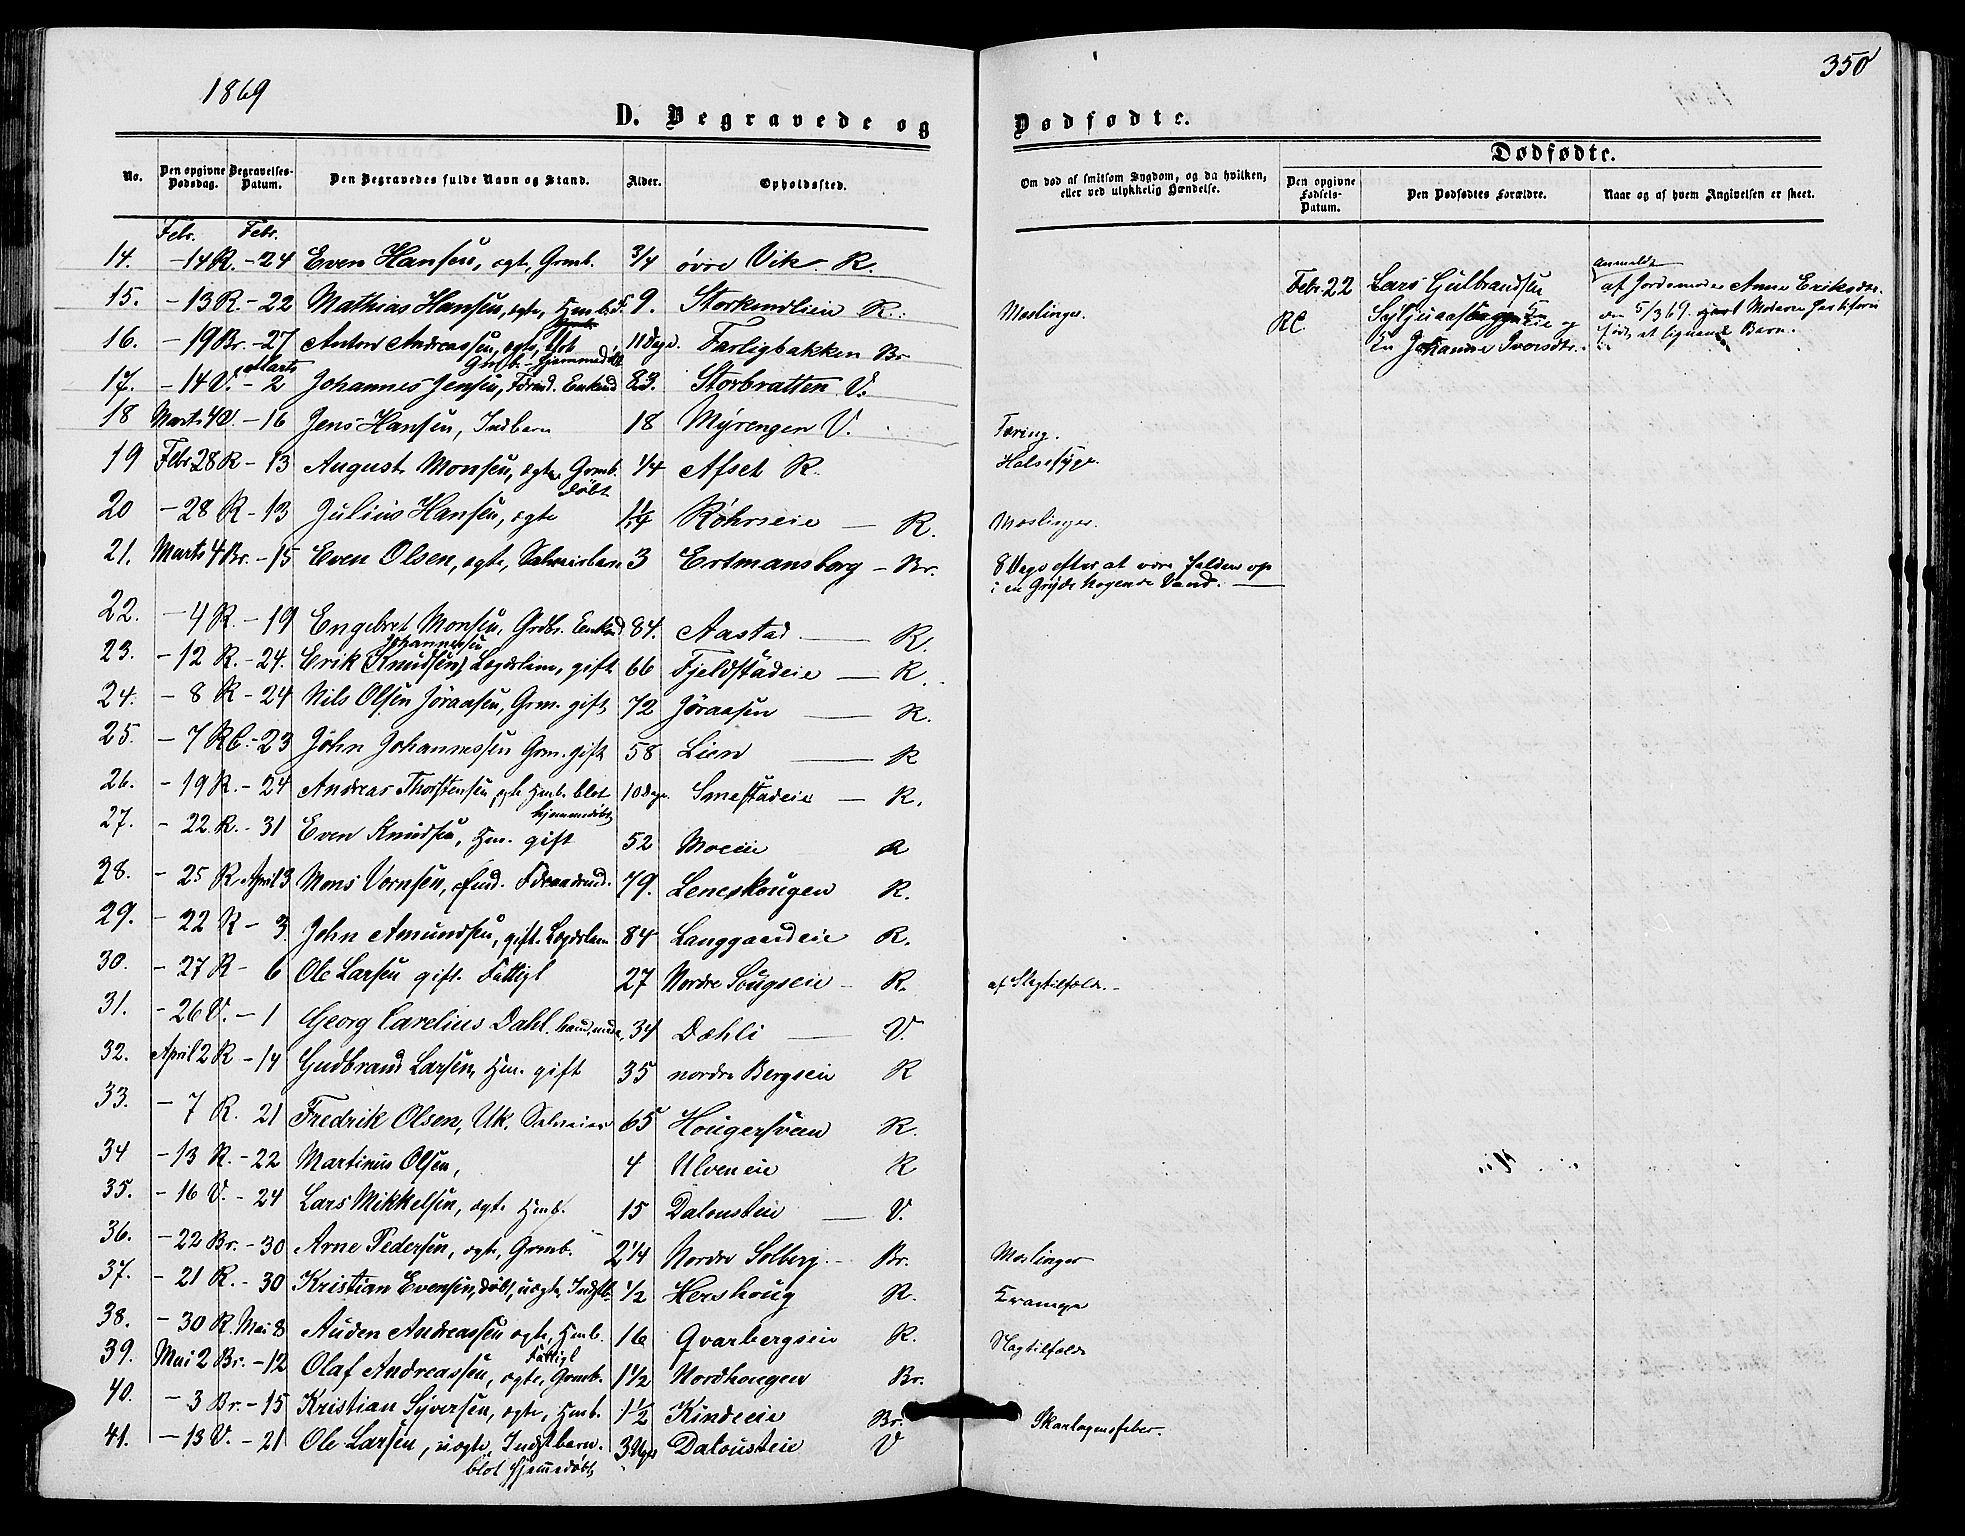 1869
350
D. Begravede og Dødfødte.
No.
Den opgivne Dødsdag.
Begravelses-Datum.
Den Begravedes fulde Navn og Stand.
Alder.
Opholdssted.
Om død af smitsom Sygdom, og da hvilken,
eller ved ulykkelig Hændelse.
Dødfødte.
Den opgivne Fødsels-Datum.
Den Dødfødtes Forældre.
Naar og af hvem Angivelsen er skeet.
Febr. Febr.
14. -14 R. -24 Even Hansen, ægte, Grmb. 3/4 øvre Vik R.
15. -13 R -22 Mathias Hansen, ægte, Hmb. 9. Storkendlien R. Mæslinger.
16. -19 Br. -27 Anton Andreassen, ægte, 11 Dage. Farligbakken Br
Grmb. Hjemmedøbt
Marts
17. -14 V. -2 Johannes Jensen, Føderd. Enkmd 83. Storbratten V.
18 Marts 4 V. -16 Jens Hansen, Indbarn 18 Myrengen V. Tæring.
19 Febr. 28 R -13 August Monsen, ægte, Grmb. 1/4 Afset R. Halssyge.
døbt
20 -28 R -13 Julius Hansen, ægte Røhrseie R. Mæslinger.
21. Marts 4 Br. -15 Even Olsen, ægte, Selveierbarn 3 Ertmansborg - Br. 8 Dage efter at være falden op
i en Gryde kogende Vand.
22. -4 R. -19 Engebret Monsen, Grdbr. Enkmd 84. Aastad R.
Johannessen
23. -12 R. -24. Erik (Knudsen) Lægdslem, gift 66 Fjeldstadeie R.
24. -8 R -24 Nils Olsen Jøraasen, Grm. gift 72 Jøraasen R.
25. -7 RC. -23 John Johannessen Grm. gift 58 Lien R
26. -19 R. -24 Andreas Thorstensen, ægte Hmb. blot 10 Dage. Smestadeie R.
hjemmedøbt
27. -22 R. -31 Even Knudsen, Hm. gift 52 Moeie R
28. -25 R. April 3 Mons 79. Leneskougen R.
29. -22 R -3. John Amundsen, gift. Lægdslem 84 Langgaardeie R.
30. -27 R -6 Ole Larsen gift. Fattigl 27 Nordre R. af Slagtilfælde.
31. -26 V. -1 Georg Carelius Dahl. 34 Dæhli V.
32. April 2 R -14 Gudbrand Larsen, Hm. gift 35 nordre Bergseie R
33. -7 R. 21 Fredrik Olsen, Uk. Selveier 65 Hougersveen R.
34 -13 R. -22 Martinus Olsen, 4 Ulveneie R
35. -16 V. -24 Lars Mikkelsen, ægte Hmb. 15 Dalousteie V.
36. -22 Br. -30 Arne Pedersen, ægte, Grmb. 2 1/4 Nordre Solberg Br. Mæslinger
37. -21 R. -30 Kristian Evensen, døbt, uægte, Indstb. 1/2 Hershoug R. Krampe
38. -30 R. Mai 8 Auden Andreassen ægte, Hmb. 16 Qvarbergseie R. Slagtilfælde
Fattigl
39. Mai 2 Br. -12 Olaf Andreassen, ægte, Grmb. 1 1/2 Nordhougen Br.
40. -3 Br. -15 Kristian Syversen, ægte, Hmb. 1 1/2 Kindeeie Br. Skarlagensfeber.
41. -13 V. -21 Ole Larsen, uægte, Indstbarn. 3 Uger Dalousteie V
blot hjemmedøbt
Febr. 22
RC
Lars Gulbrandsen
og
Johanne Iversdtr.
Anmeldt
af Jordemoder Anne Eriksdtr.
den 5/3 69.